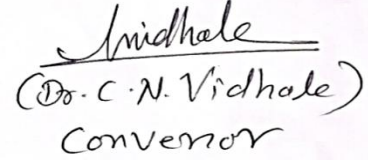 Vidhale
(Dr. C. N. Vidhale)
Convenor